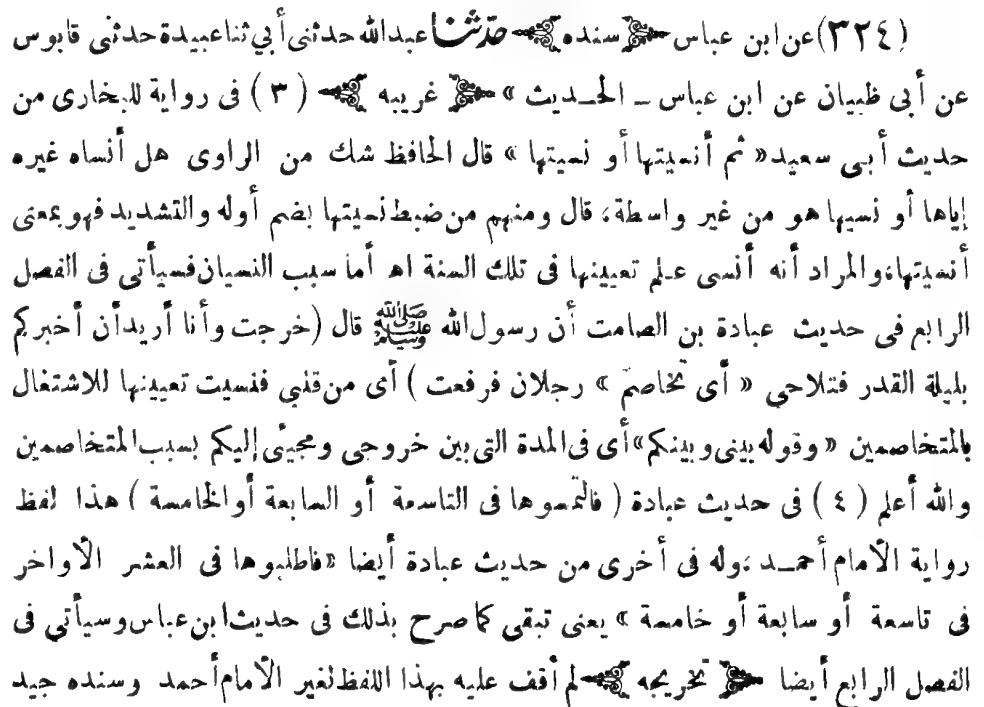 (٣٢٤) عن ابن عباس ﴿سنده﴾ حدثنا عبد الله حدثنى أبي ثنا عبيدة حدثنى قابوس
عن أبى ظبيان عن ابن عباس ــ الحــديث » ﴿غريبه﴾ ( ٣ ) فى رواية للبخارى من
حديث أبـى سعيد « ثم أنسيتها أو نسيتها » قال الحافظ شك من الراوى هل أنساه غيره
إياها أو نسيها هو من غير واسطة، قال ومنهم من ضبط نسيتها بضم أوله والتشديد فهو بمعنى
أنسيتها، والمراد أنه أنسى عــلم تعيينها فى تلك السنة اهـ أما سبب النسيان فسيأتى فى الفصل
الرابع فى حديث عبادة بن الصامت أن رسول الله ﷺ قال (خرجت وأنا أريد أن أخبركم
بليلة القدر فتلاحى « أى تخاصم » رجلان فرفعت ) أى من قلبي فنسيت تعيينها للاشتغال
بالمتخاصمين « وقوله بينى وبينكم» أى فى المدة التى بين خروجى ومجيئى إليكم بسبب المتخاصمين
والله أعلم ( ٤ ) فى حديث عبادة ( فالتمسوها فى التاسعة أو السابعة أو الخامسة ) هذا لفظ
رواية الأمام أحمــد ،وله فى أخرى من حديث عبادة أيضا «فاطلبوها فى العشر الأواخر
فى تاسعة أو سابعة أو خامسة » يعنى تبقى كما صرح بذلك فى حديث ابن عباس وسيأتي فى
الفصل الرابع أيضا ﴿تخريجه﴾ لم أقف عليه بهذا اللفظ لغير الأمام أحمد وسنده جيد